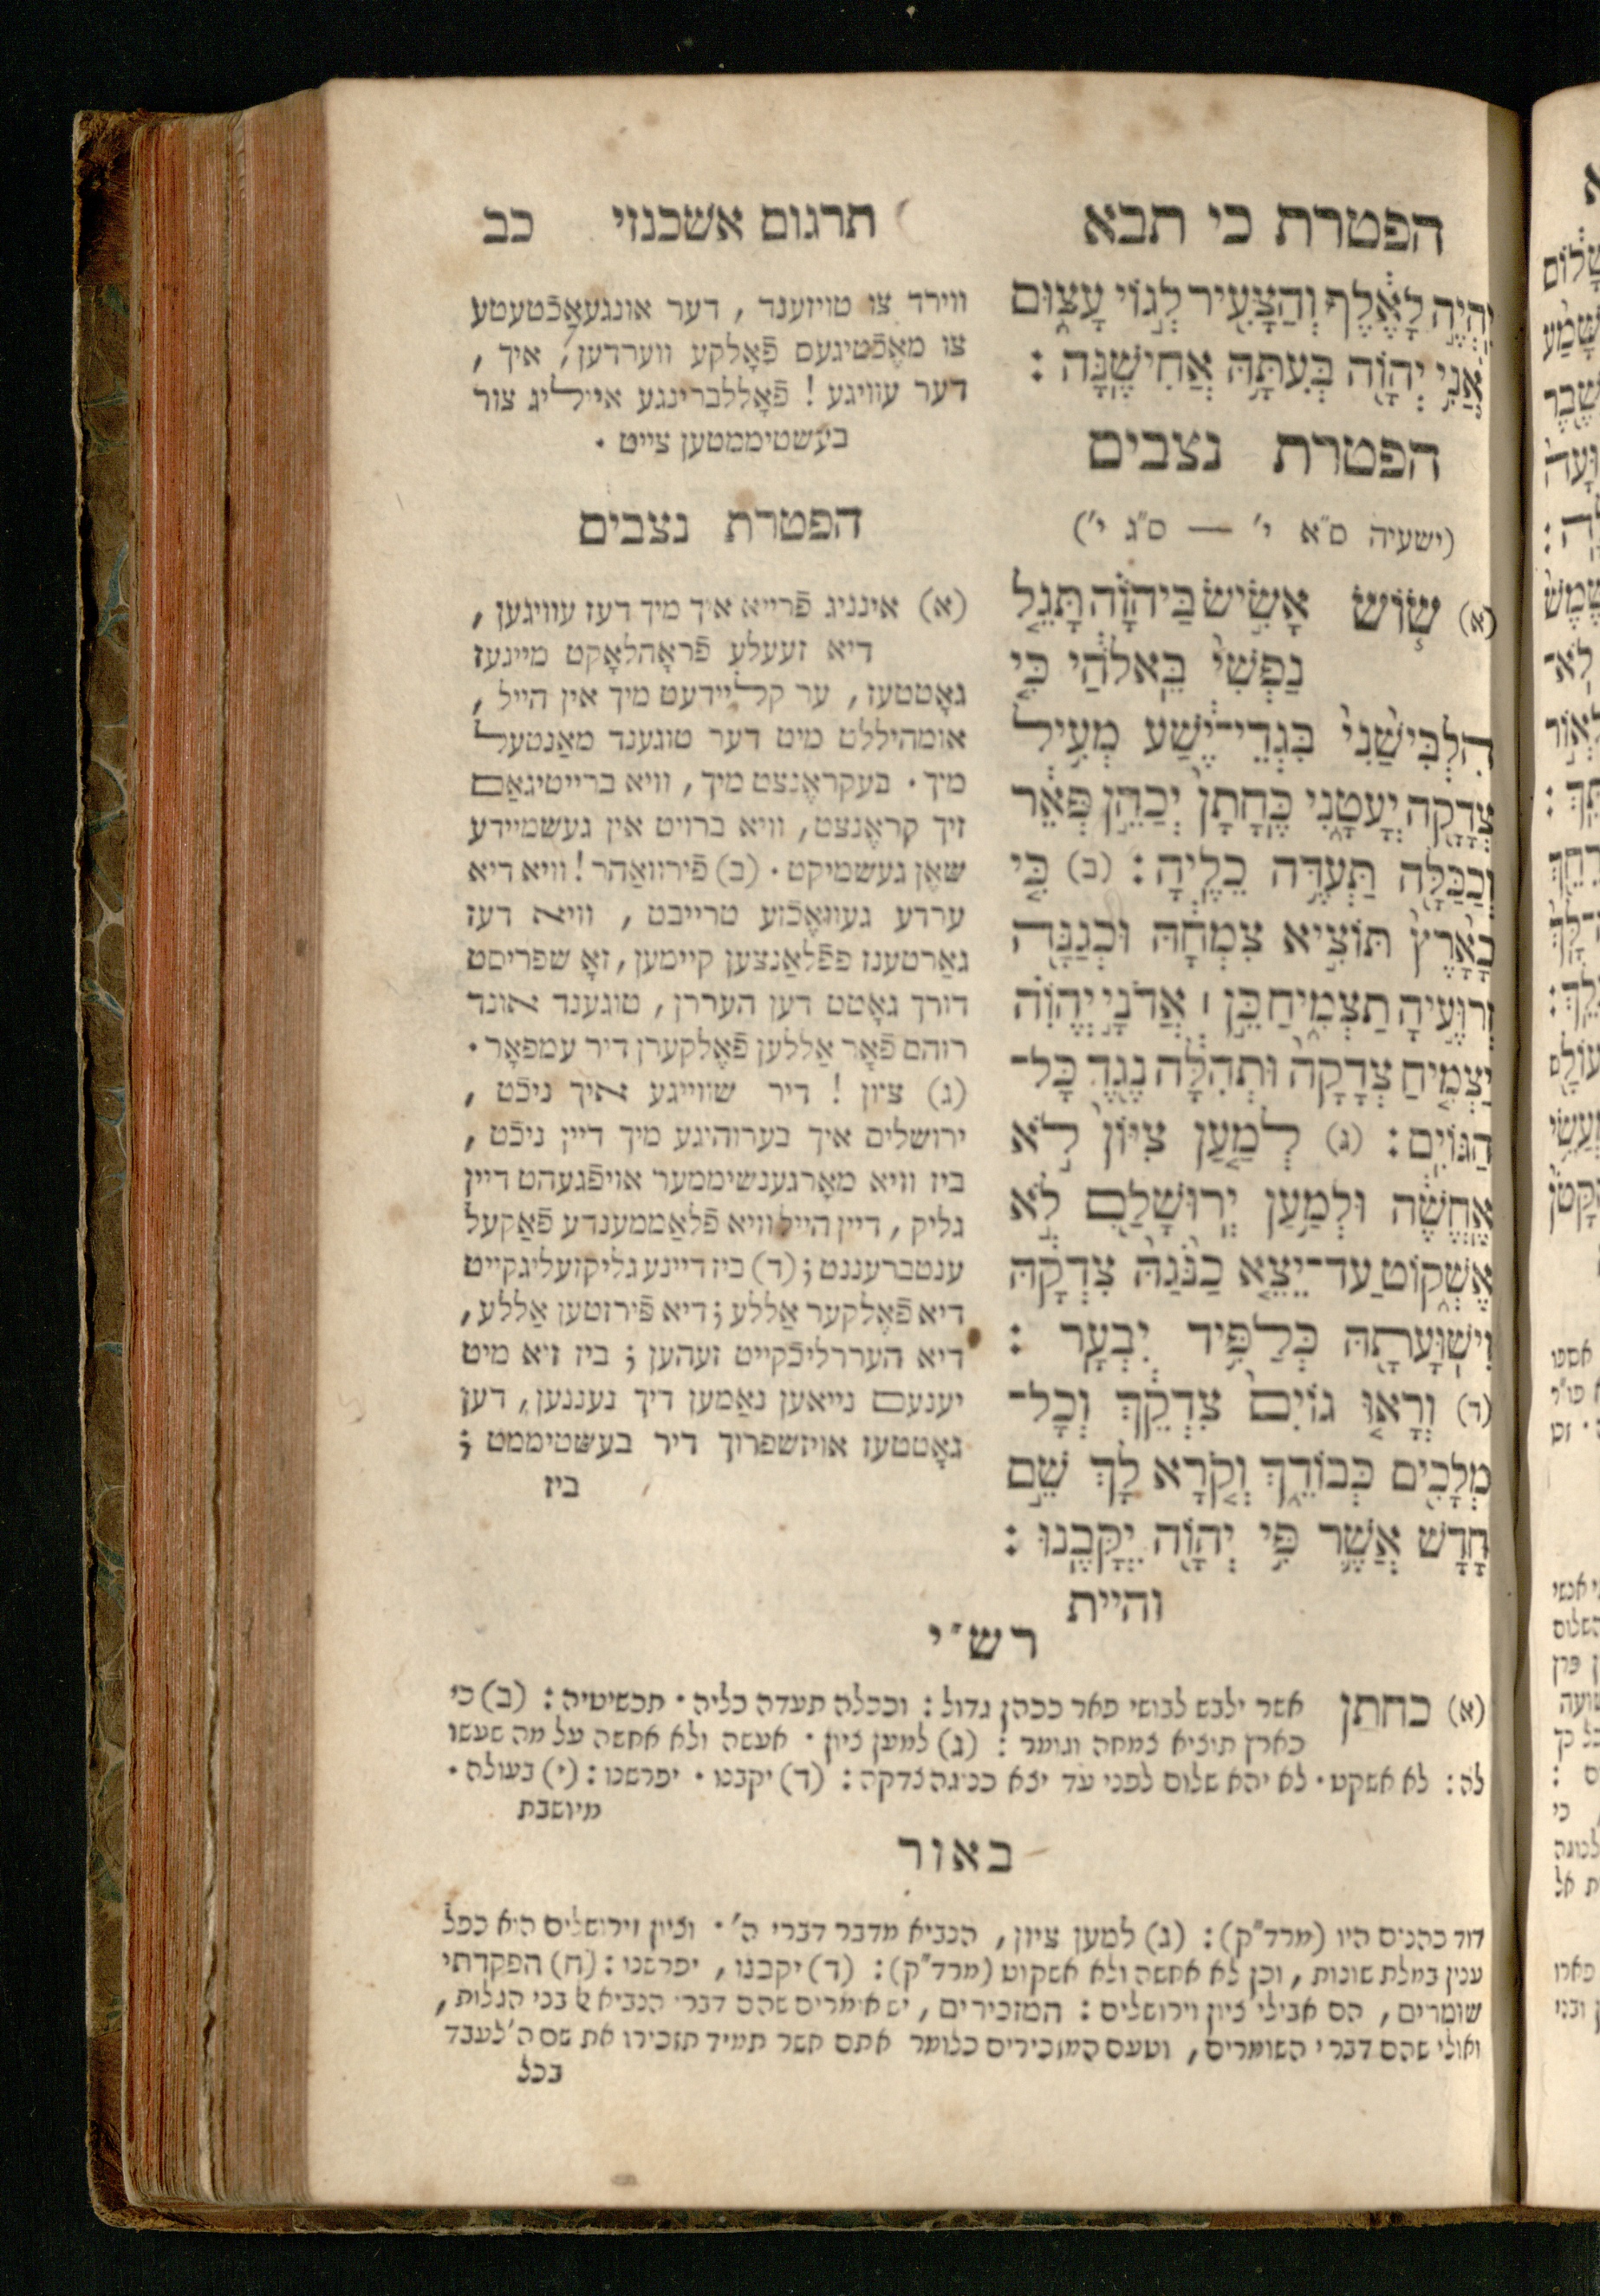 הפטרת כי תבא
יִֽהְיֶ֣ה לָאֶ֔לֶף וְהַצָּעִ֖יר לְג֣וֹי עָצ֑וּם
אֲנִ֥י יְהוָ֖ה בְּעִתָּ֥הּ אֲחִישֶֽׁנָּה :
הפטרת נצבים
(ישעיה ס״א י׳ — ס״ג י׳)
(א) שׂ֧וֹשׂ אָשִׂ֣ישׂ בַּֽיהוָ֗ה תָּגֵ֤ל
נַפְשִׁי֙ בֵּֽאלֹהַ֔י כִּ֤י
הִלְבִּישַׁ֙נִי֙ בִּגְדֵי־יֶ֔שַׁע מְעִ֥יל
צְדָקָ֖ה יְעָטָ֑נִי כֶּֽחָתָן֙ יְכַהֵ֣ן פְּאֵ֔ר
וְכַכַּלָּ֖ה תַּעְדֶּ֥ה כֵלֶֽיהָ : (ב) כִּ֤י
כָאָ֙רֶץ֙ תּוֹצִ֣יא צִמְחָ֔הּ וּכְגַנָּ֖ה
זֵרוּעֶ֣יהָ תַצְמִ֑יחַ כֵּ֣ן ׀ אֲדֹנָ֣י יֱהוִֹ֗ה
יַצְמִ֤יחַ צְדָקָה֙ וּתְהִלָּ֔ה נֶ֖גֶד כָּל־
הַגּוֹיִֽם : (ג) לְמַ֤עַן צִיּוֹן֙ לֹ֣א
אֶחֱשֶׁ֔ה וּלְמַ֥עַן יְרוּשָׁלִַ֖ם לֹ֣א
אֶשְׁק֑וֹט עַד־יֵצֵ֤א כַנֹּ֙גַהּ֙ צִדְקָ֔הּ
וִישׁוּעָתָ֖הּ כְּלַפִּ֥יד יִבְעָֽר :
(ד) וְרָא֤וּ גוֹיִם֙ צִדְקֵ֔ךְ וְכָל־
מְלָכִ֖ים כְּבוֹדֵ֑ךְ וְקֹ֤רָא לָךְ֙ שֵׁ֣ם
חָדָ֔שׁ אֲשֶׁ֛ר פִּ֥י יְהוָ֖ה יִקֳּבֶֽנּוּ :
והיית
תרגום אשכנזי כב
ווירד צו טויזענד , דער אונגעאַכֿטעטע
צו מאֶכֿטיגעם פֿאָלקע ווערדען , איך ,
דער עוויגע ! פֿאָללברינגע אייליג צור
בעשטיממטען צייט .
הפטרת נצבים
(א) אינניג פֿרייא איך מיך דעז עוויגען ,
דיא זעעלע פֿראָהלאָקט מיינעז
גאָטטעז , ער קליידעט מיך אין הייל ,
אומהיללט מיט דער טוגענד מאַנטעל
מיך . בעקראֶנצט מיך , וויא ברייטיגאַם
זיך קראֶנצט , וויא ברויט אין געשמיידע
שאֶן געשמיקט . (ב) פֿירוואַהר ! וויא דיא
ערדע געוואֶכֿזע טרייבט , וויא דעז
גאַרטענז פפֿלאַנצען קיימען , זאָ שפריסט
דורך גאָטט דען העררן , טוגענד אונד
רוהם פֿאָר אַללען פֿאֶלקערן דיר עמפאָר .
(ג) ציון ! דיר שווייגע איך ניכֿט ,
ירושלים איך בערוהיגע מיך דיין ניכֿט ,
ביז וויא מאָרגענשיממער אויפֿגעהט דיין
גליק , דיין הייל וויא פֿלאַממענדע פֿאַקעל
ענטברעננט ; (ד) ביז דיינע גליקזעליגקייט
דיא פֿאֶלקער אַללע ; דיא פֿירזטען אַללע ,
דיא הערר­ליכֿקייט זעהען ; ביז זיא מיט
יענעם נייאען נאַמען דיך נעננען , דען
גאָטטעז אויזשפרוך דיר בעשטיממט ;
ביז
רש״י
(א) כחתן אשר ילבש לבושי פאר ככהן גדול : וככלה תעדה כליה . תכשיטיה : (ב) כי
כארץ תוציא צמחה וגומר : (ג) למען ציון . אעשה ולא אחשה על מה שעשו
לה : לא אשקט . לא יהא שלום לפני עד יצא כנוגה צדקה : (ד) יקבנו . יפרשנו : (י) בעולה .
מיושבת
באור
דוד כהנים היו (מרד״ק) : (ג) למען ציון , הנביא מדבר דברי ה׳ . וציון וירושלים הוא כפל
ענין במלת שונות , וכן לא אחשה ולא אשקוט (מרד״ק) : (ד) יקבנו , יפרשנו : (ח) הפקדתי
שומרים , הם אבילי ציון וירושלים : המזכירים , יש אומרים שהם דברי הנביא על בני הגלות ,
ואולי שהם דברי השומרים , וטעם המזכירים כלומר אתם אשר תמיד תזכירו את שם ה׳ לעבד
בכל